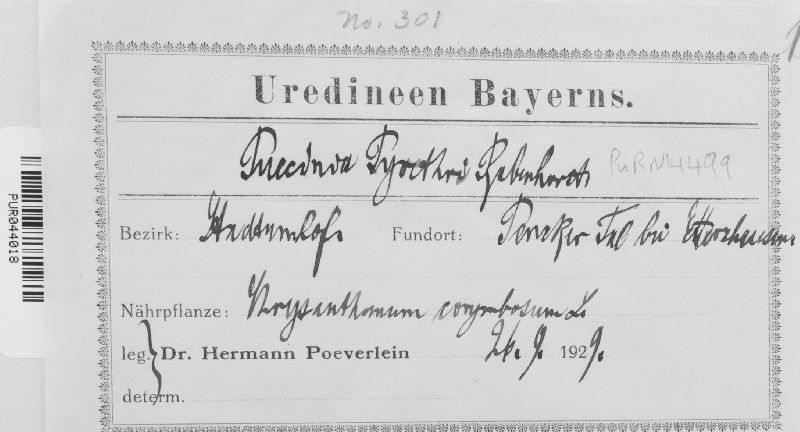 No. 301
Uredineen Bayerns.
Puccinia Pyrethri Rabenhorst
PUR N14499
Bezirk: Stadtamhof. Fundort: Penker Tal bei Etterzhausen.
Nährpflanze: Chrysanthemum corymbosum L.
leg. Dr. Hermann Poeverlein 26. 9. 1929.
determ.
PUR044018